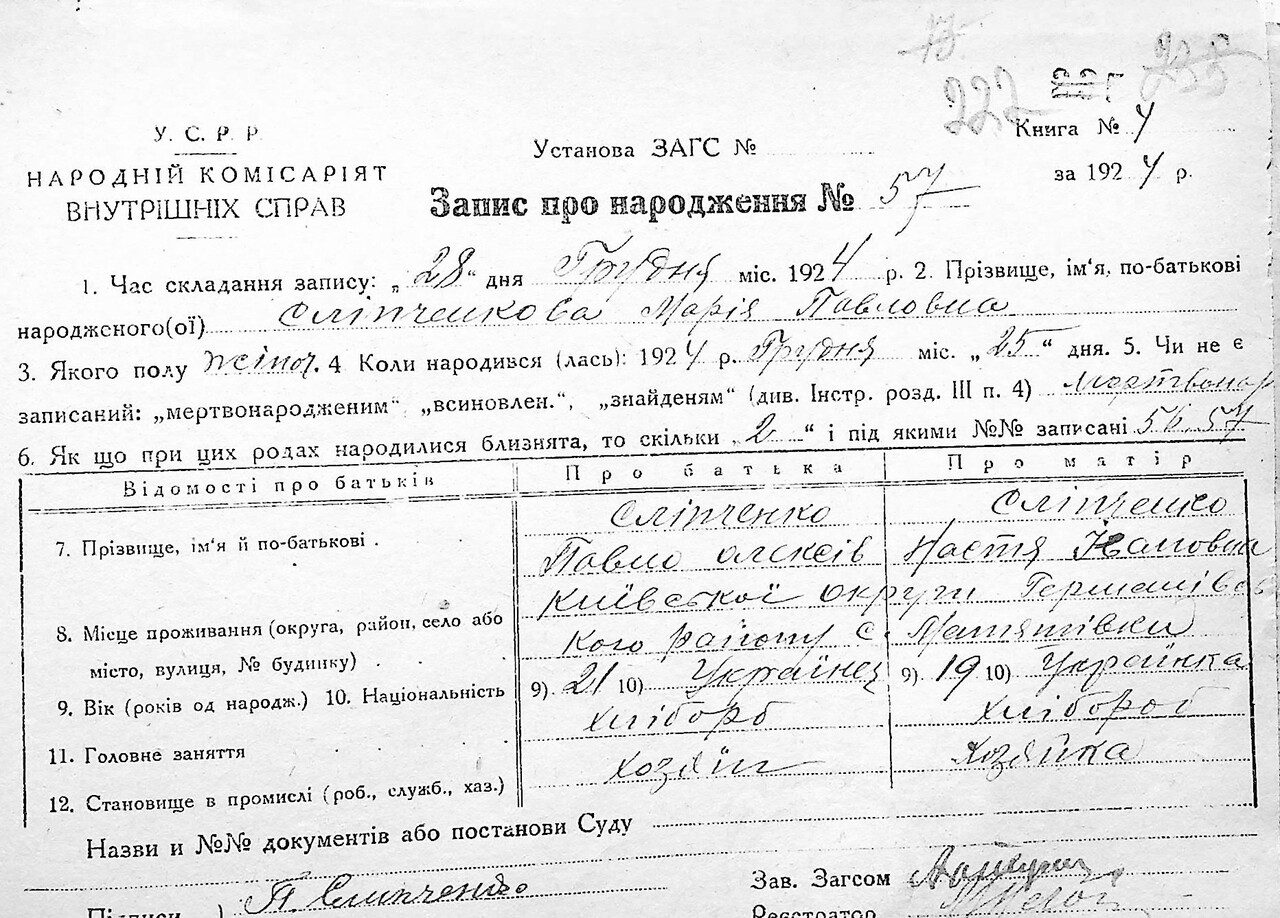 222 235
У. С. Р. Р.
НАРОДНІЙ КОМІСАРІЯТ
ВНУТРІШНІХ СПРАВ
Установа ЗАГС №
Книга № 4
за 1924 р.
Запис про народження № 57
1. Час складання запису: „28“ дня Грудня міс. 1924 р. 2. Прізвище, ім'я, по-батькові
народженого(ої) Сліпченкова Марія Павловна
3. Якого полу жіноч. 4 Коли народився (лась): 1924 р. Грудня міс. „25“ дня. 5. Чи не є
записаний: „мертвонародженим“ „всиновлен.“, „знайденям“ (див. Інстр. розд. III п. 4) Мертвонар
6. Як що при цих родах народилися близнята, то скільки „2“ і під якими №№ записані 56. 57
Відомості про батьків Про батька Про матір
7. Прізвище, ім'я й по-батькові . Сліпченко Сліпченко
Павло Олексів Настя
8. Місце проживання (округа, район, село або Київської округи Германівсь
місто, вулиця, № будинку) . кого району с. Матятівки
9. Вік (років од народж.) 10. Національність 9) 21 10) Українец 9) 19 10) Українка
11. Головне заняття Хліборб Хлібороб
12. Становище в промислі (роб., служб., хаз.) Хозяін Хозяйка
Назви и №№ документів або постанови Суду
Підписи ) П. Слипченко
Зав. Загсом
Реєстратор